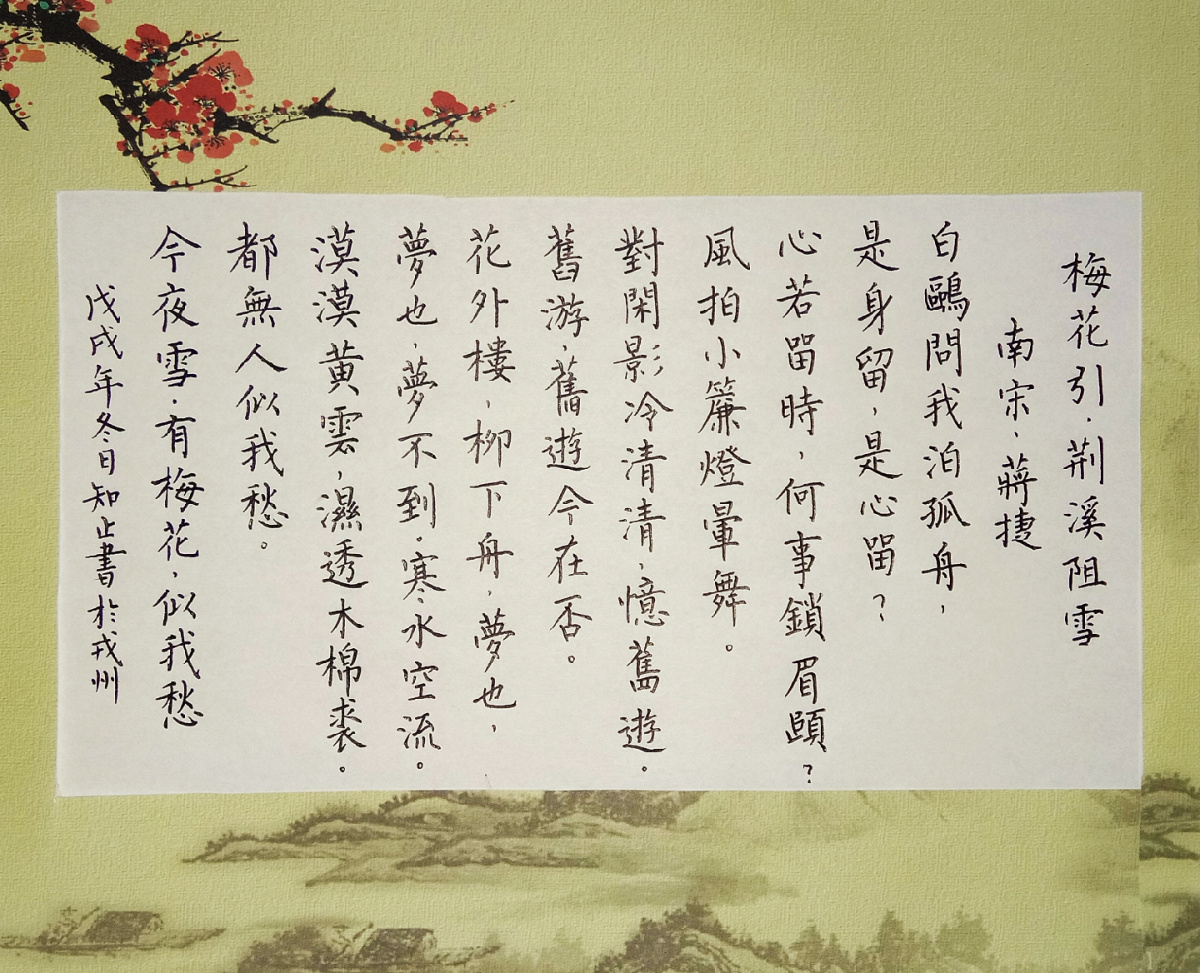 梅花引·荆溪阻雪
南宋·蔣捷
白鷗問我泊孤舟，
是身留，是心留？
心若留時，何事鎖眉頭？
風拍小簾燈暈舞。
對閑影冷清清，憶舊遊。
舊游，舊遊今在否。
花外樓，柳下舟，夢也，
夢也，夢不到·寒水空流。
漠漠黄雲，濕透木棉裘。
都無人似我愁。
今夜雪·有梅花，似我愁
戊戌年冬日知止書於戎州